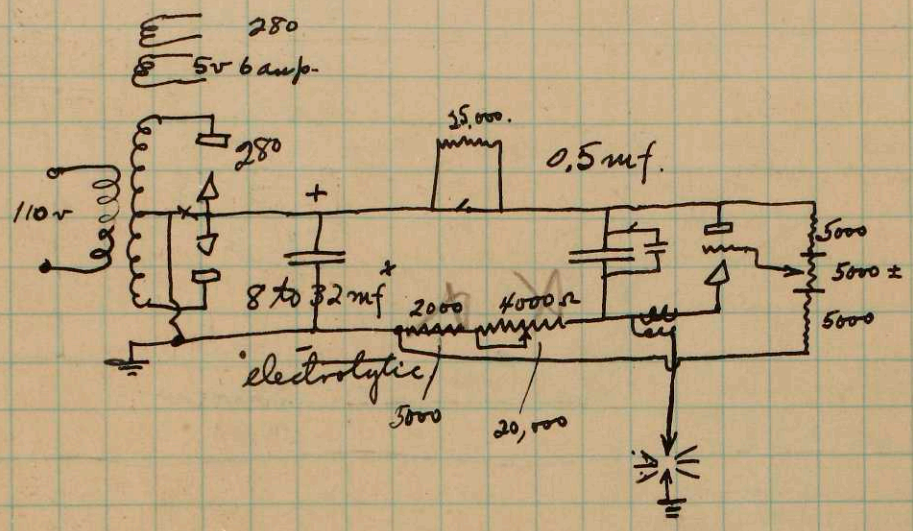 280
5v 6 amp.
280
15,000.
0.5 mf.
110 v
+
5000
8 to 32 mf
2000
4000 Ω
5000 ±
5000
electrolytic
5000
20,000